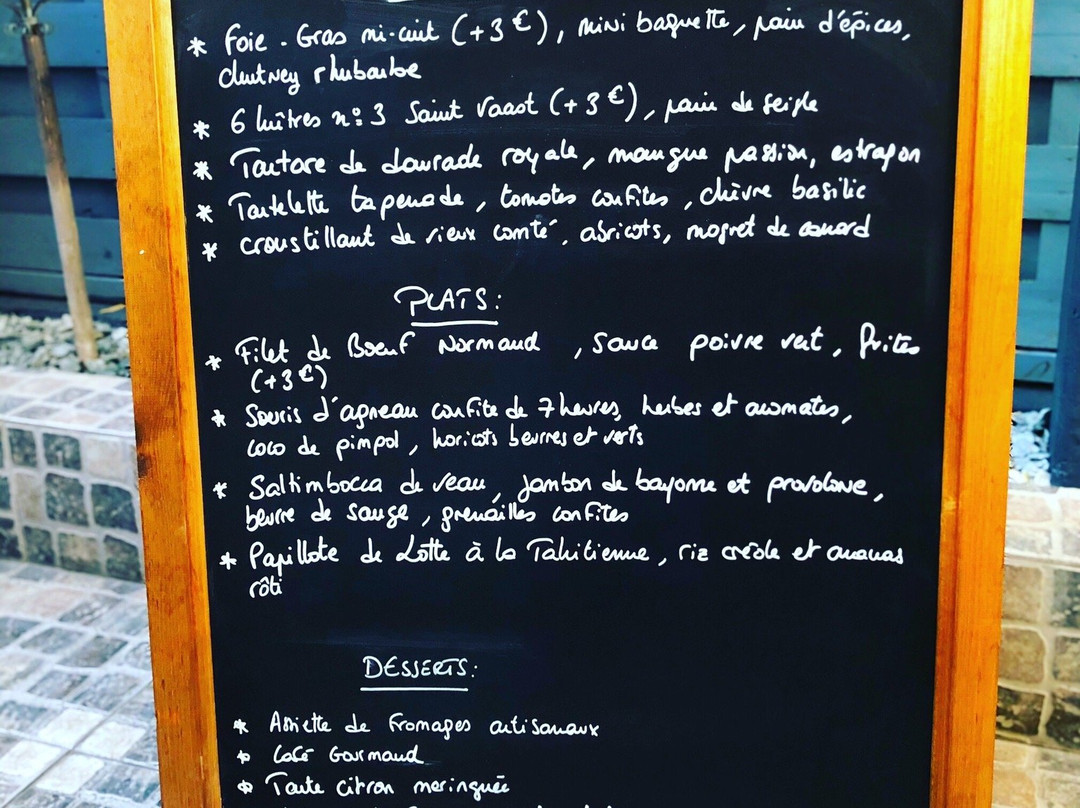 * Foie-Gras mi-cuit (+3€), mini baguette, pain d'épices,
chutney rhubarbe
* 6 huîtres n°3 Saint Vaast (+3€), pain de seigle
* Tartare de daurade royale, mangue passion, estragon
* Tartelette tapenade, tomates confites, chèvre basilic
* croustillant de vieux comté, abricots, magret de canard
PLATS:
* Filet de Boeuf Normand, sauce poivre vert, frites
(+3€)
* Souris d'agneau confite de 7 heures, herbes et aromates,
coco de pimpol, haricots beurres et verts
* Saltimbocca de veau, jambon de bayonne et provolone,
beurre de sauge, grenailles confites
* Papillote de Lotte à la Tahitienne, riz créole et ananas
rôti
DESSERTS:
* Assiette de fromages artisanaux
* Café Gourmand
* Tarte citron meringuée